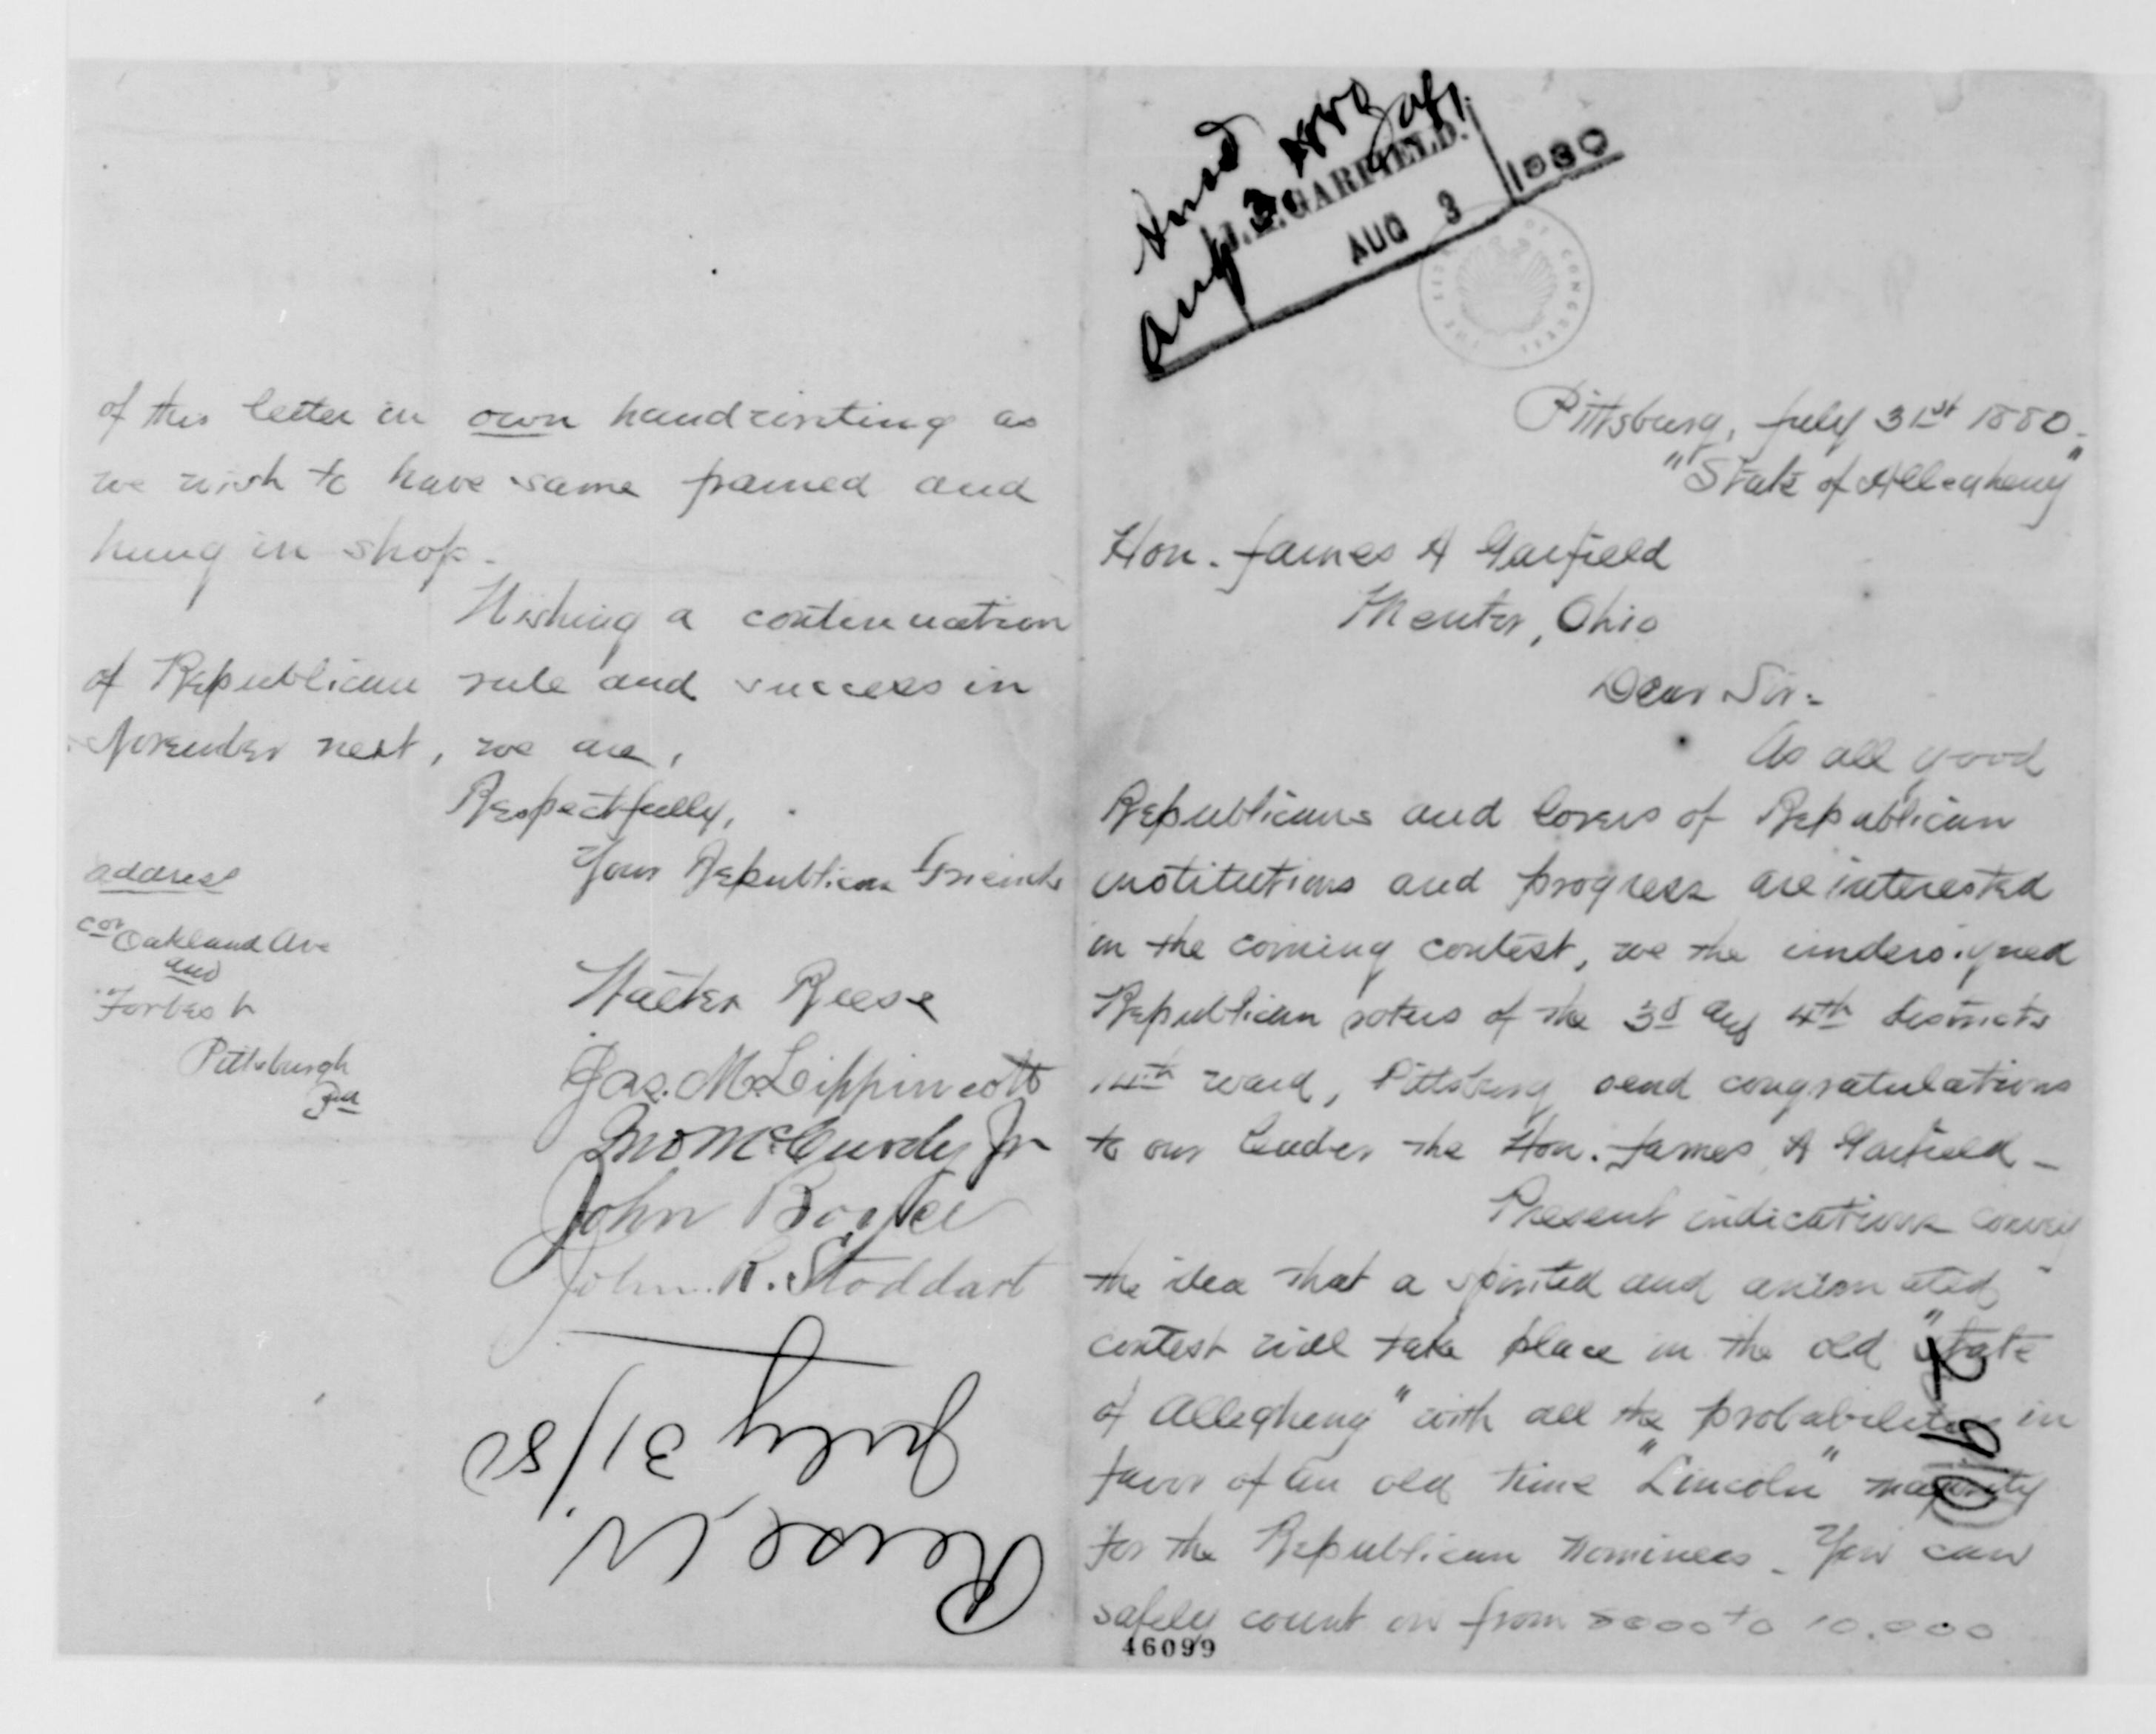 Ansd
Aug 3 1880
J. A. GARFIELD.
AUG 3 1880
Pittsburg, July 31st 1880.
"State of Allegheny"
Hon. James A Garfield
Mentor, Ohio
Dear Sir-
As all good
Republicans and lovers of Republican
institutions and progress are interested
in the coming contest, we the undersigned
Republican voters of the 3d and 4th districts
14th ward, Pittsburg send congratulations
to our leader the Hon. James A Garfield -
Present indications convey
the idea that a spirited and animated
contest will take place in the old "State
of Allegheny" with all the probabilities in
favor of an old time "Lincoln" majority
for the Republican nominees - You can
safely count on from 8000 to 10,000
46099
of this letter in own handwriting as
we wish to have same framed and
hung in shop -
Wishing a continuation
of Republican rule and success in
November next, we are,
Respectfully,
Your Republican Friends
Walter Reese
Jas. M. Lippincott
Jno McCurdy Jr
John
John R. Stoddart
address
cor Oakland Ave
and
Forbes
Pittsburgh
Pa
Reese, W.
July 31/80